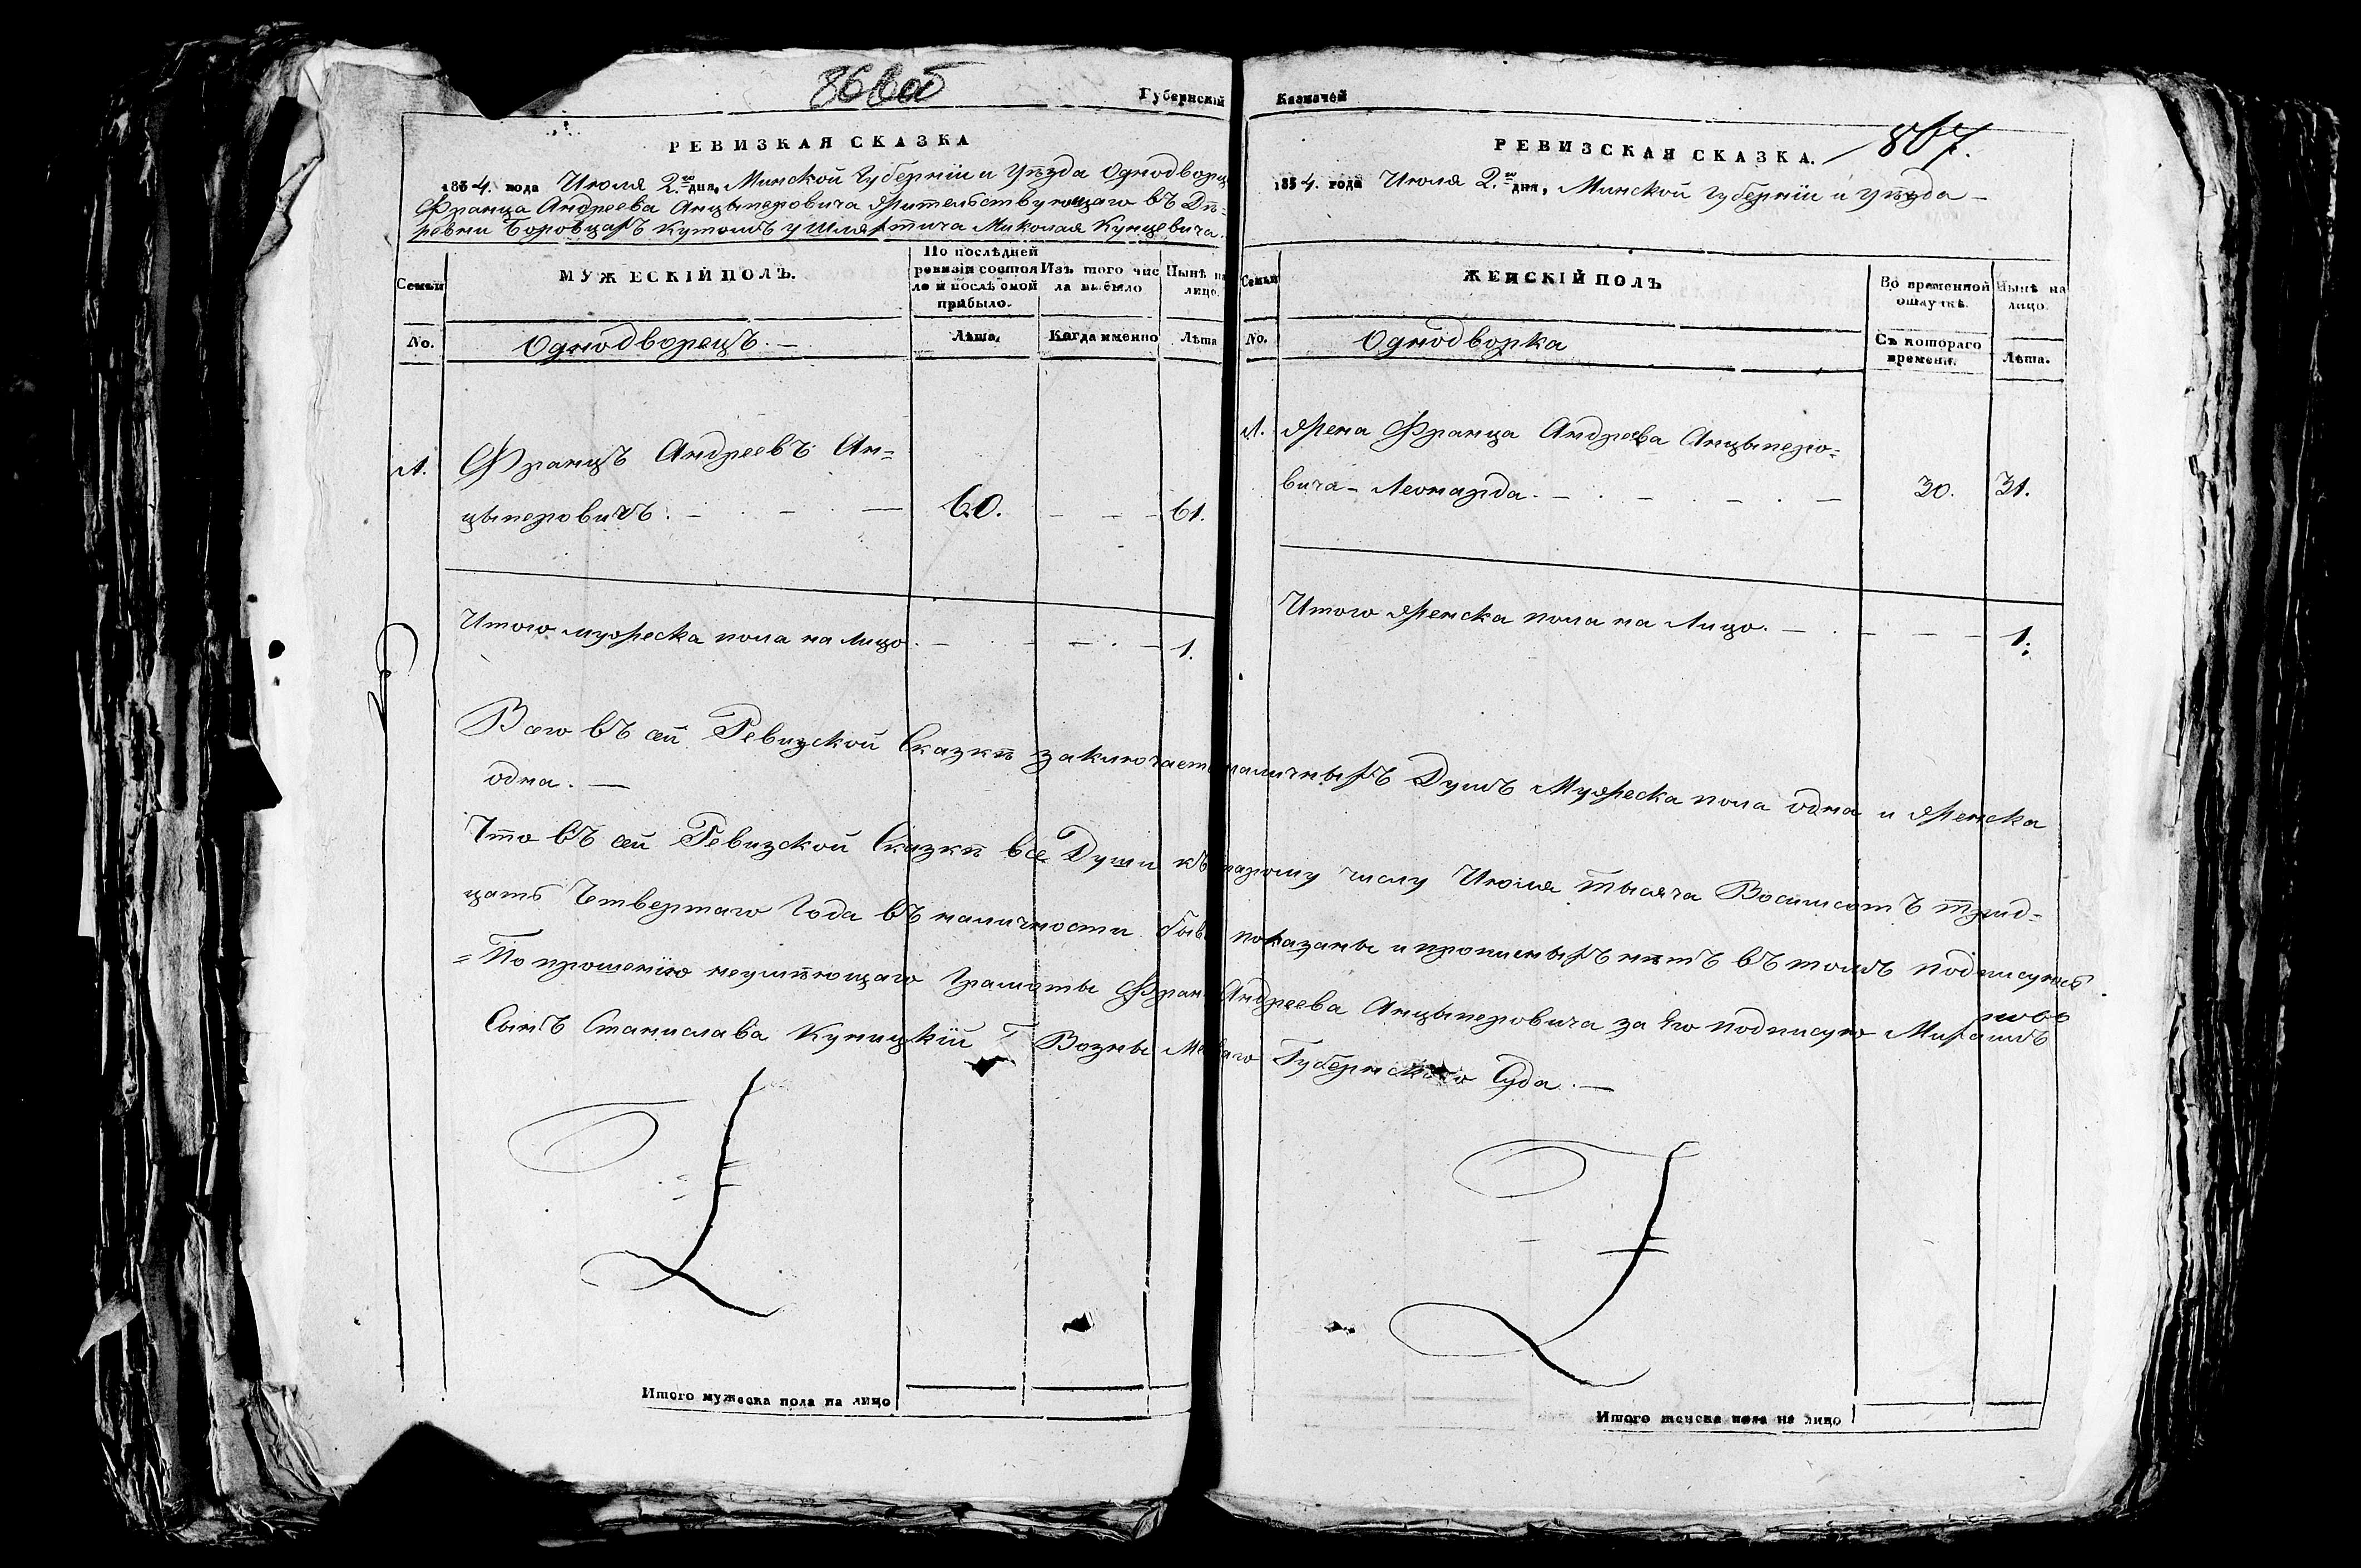 866об
Губернскій Казначей
РЕВИЗКАЯ СКАЗКА
1834. года Июля 2.го дня, Минской Губерніи и Уѣзда Однодворца
Франца Андреева Анцыперовича жительствующаго въ Дѣ-
ревни Боровцахъ Кутомъ у Шляхтича Миколая Кунцевича.
Семьи
МУЖЕСКІЙ ПОЛЪ.
По послѣдней
ревизіи состоя
ло и послѣ оной
прибыло.
Изъ того чис
ла выбыло
Нынѣ на
лицо.
No.
Однодворецъ. —
Лѣта.
Когда именно
Лѣта
1.
Францъ Андреевъ Ан=
цыперовичъ. — — —
60.
— — —
61.
Итого мужеска пола на лицо. — — . — 1.
867.
РЕВИЗСКАЯ СКАЗКА.
1834. года Июля 2.го дня, Минской Губерніи и Уѣзда —
Семьи
ЖЕНСКІЙ ПОЛЪ
Во временной
отлучкѣ.
Нынѣ на
лицо.
No.
Однодворка
Съ котораго
времени.
Лѣта.
1.
Жена Франца Андреева Анцыперо=
вича — Леонарда. — . — — . —
30.
31.
Итого женска пола на Лицо. — . — — — 1.
Всего въ сей Ревизской Сказкѣ заключаетъ наличныхъ Душъ Мужеска пола одна и женска
одна. —
Что въ сей Ревизской Сказкѣ все Души къ
числу Июля тысяча Восимсотъ трид=
цать Четвертаго Года въ наличности
показаны и прописныхъ нѣтъ въ томъ подписуюсь
=По прошенію неумѣющаго Грамоты Фран Андреева Анцыперовича за его подписую
Сынъ Станислава Куницкій Возны
Губернского Суда. —
Итого мужеска пола на лицо
Итого женска пола на лицо